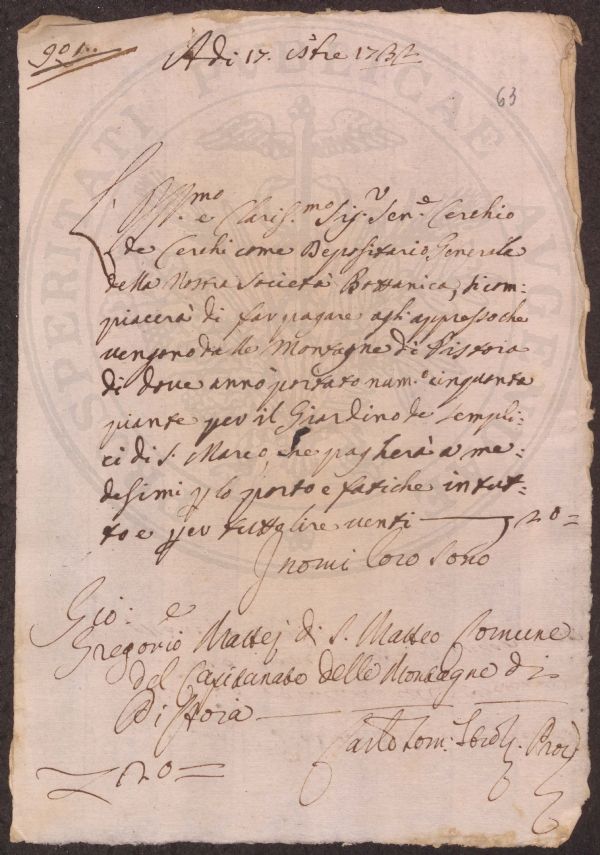 901..
A di 17. 8bre 173
63
L' Ill.mo e Claris.mo Sig.r Sen.e Cerchio
de Cerchi come Depositario Generale
della Nostra Società Bottanica, si com=
piacerà di far pagare agli appresso che
vengono dalle Montagne di Pistoia
di dove anno portato num.o cinquanta
piante per il Giardino de sempli=
ci di S. Marco, che pagherà a me=
desimi p lo porto e fatiche in tut=
to e per tutto lire venti — 20=
I nomi loro sono
Gio: e
Gregorio Mattej di S. Matteo Comune
del Capitanato delle Montagne di
Pistoia
20=
SPERITATI PUBLICAE AUGE